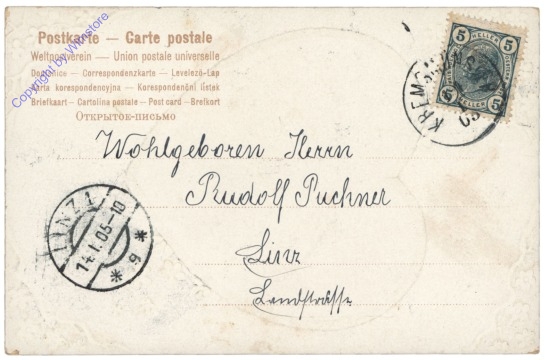 Postkarte — Carte postale
Weltpostverein — Union postale universelle
Dopisnice — Correspondenzkarte — Levelező-Lap
Karta korespondencyjna — Korespondenční lístek
Briefkaart — Cartolina postale — Post card — Brefkort
Открытое-письмо
Copyright by Winstore
5 HELLER 5
5 HELLER 5
KREMS
05
Wohlgeboren Herrn
Rudolf Puchner
Linz
Landstrasse
LINZ 1
14.1.05-10
* 9 *